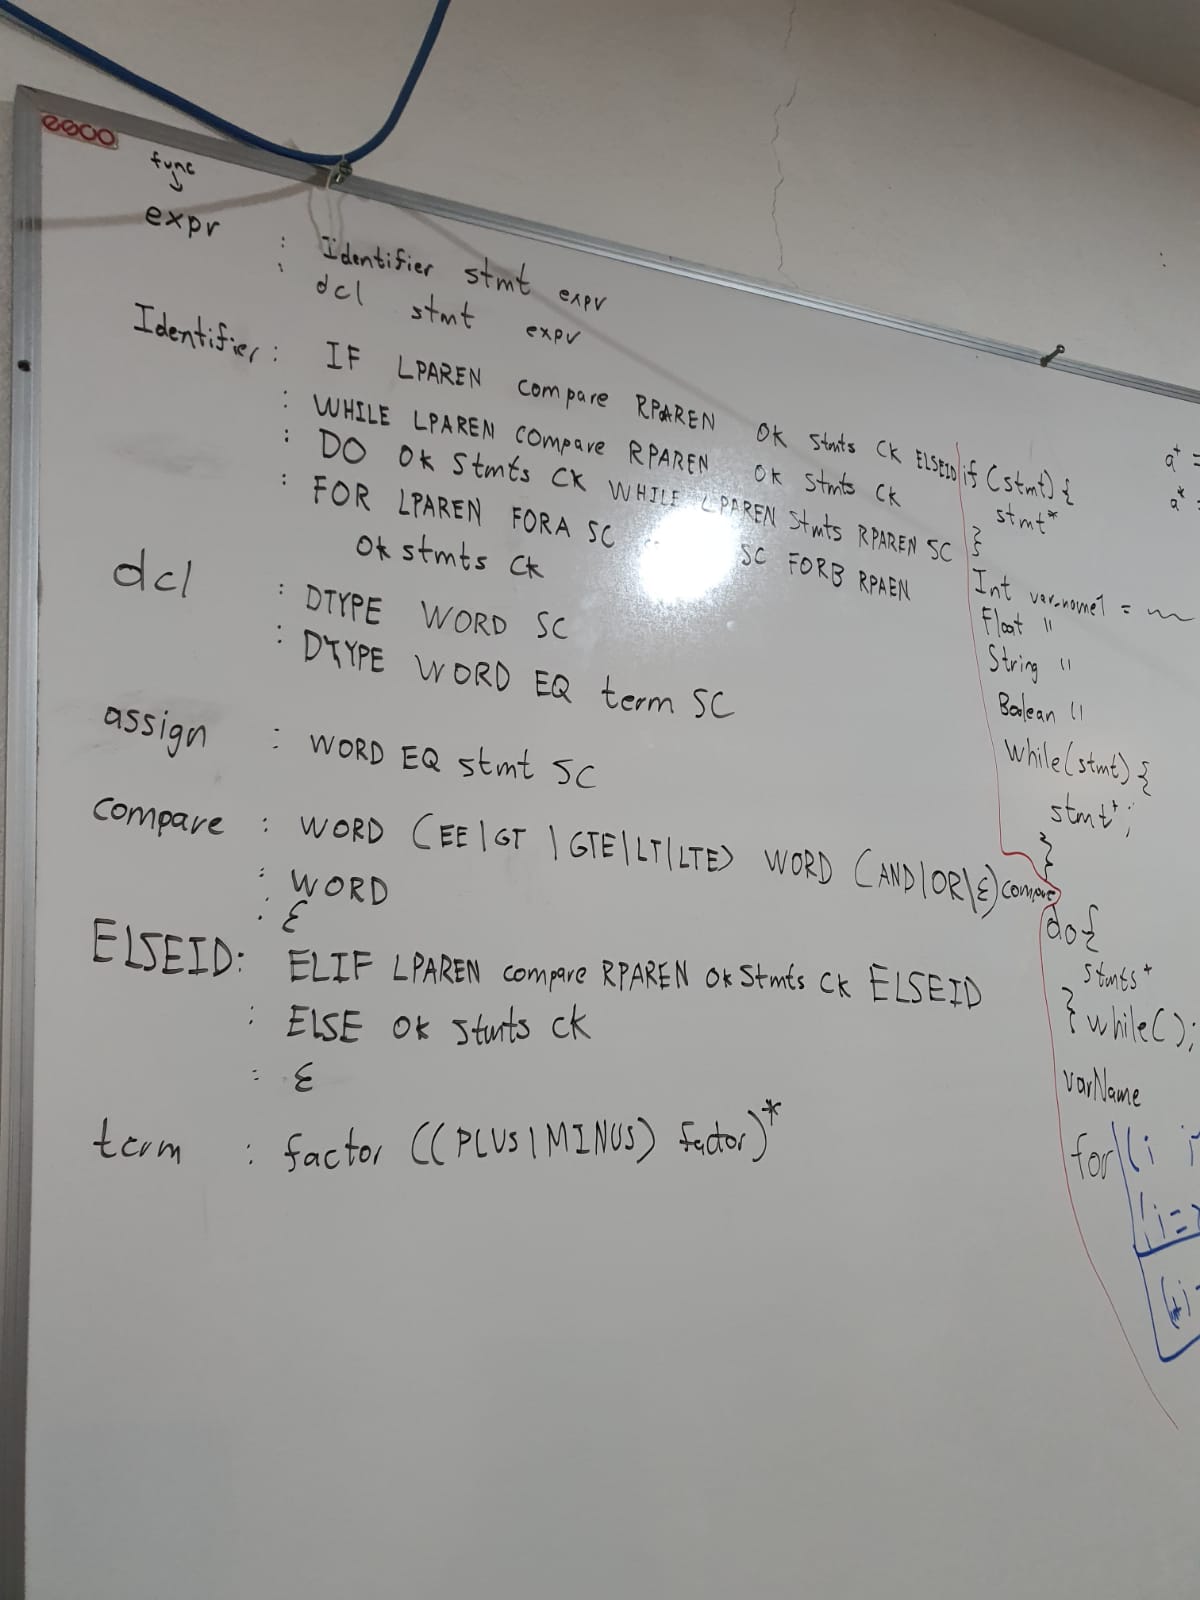 eeco
func
expr : Identifier stmt expr
: dcl stmt expr
Identifier : IF LPAREN compare RPAREN OK stmts CK ELSEID
: WHILE LPAREN compare RPAREN OK stmts CK
: DO OK stmts CK WHILE LPAREN stmts RPAREN SC
: FOR LPAREN FORA SC SC FORB RPAEN
OK stmts CK
dcl : DTYPE WORD SC
: DTYPE WORD EQ term SC
assign : WORD EQ stmt SC
compare : WORD (EE|GT |GTE|LT|LTE) WORD (AND|OR|ε) compare
: WORD
: ε
ELSEID: ELIF LPAREN compare RPAREN OK stmts CK ELSEID
: ELSE OK stmts CK
: ε
term : factor ((PLUS|MINUS) factor)*
if (stmt) {
stmt*
}
Int var_name1 =
Float "
String "
Boolean "
while(stmt) {
stmt+;
}
do{
stmts+
} while();
varName
for (i
(i=
a+ =
a* =